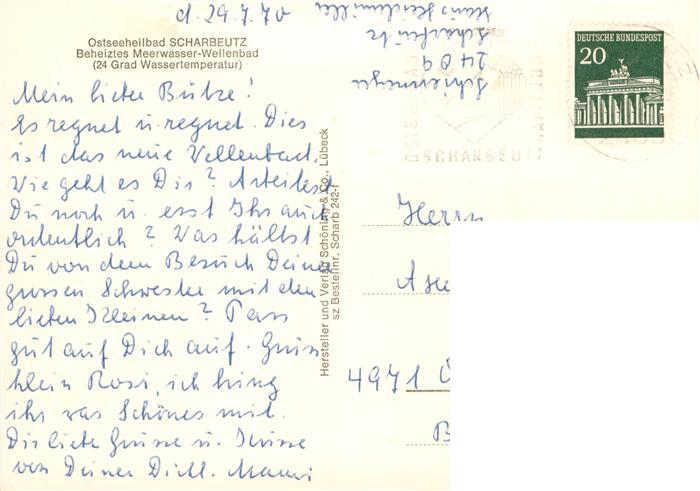 d. 29.7.70
Ostseeheilbad SCHARBEUTZ
Beheiztes Meerwasser-Wellenbad
(24 Grad Wassertemperatur)
Mein lieber Butze!
Es regnet u. regnet. Dies
ist das neue Wellenbad.
Wie geht es Dir? Arbeitest
Du noch u. esst Ihr auch
ordentlich? Was hältst
Du von dem Besuch Deiner
grossen Schwester mit den
lieben Kleinen? Pass
gut auf Dich auf. Grüss
klein Rosi, ich bring
ihr was Schönes mit.
Dir liebe Grüsse u. Küsse
von Deiner Dich l. Mami
Hersteller und Verlag Schöning & Co., Lübeck
sz Bestellnr. Scharb 242-f
Haus
2409
Scharbeutz
SCHARBEUTZ
DEUTSCHE BUNDESPOST
20
Herrn
4971
B